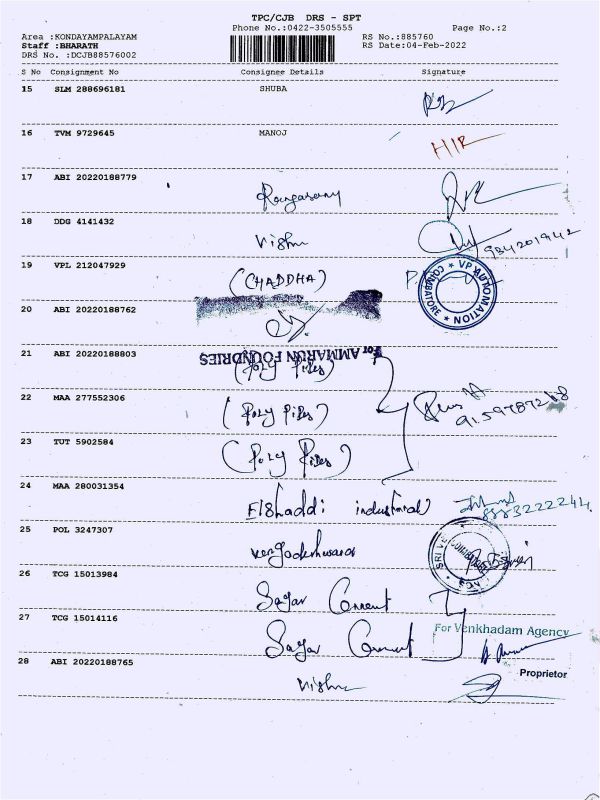 TPC/CJB DRS - SPT
Phone No.:0422-3505555 Page No.:2
Area :KONDAYAMPALAYAM RS No.:885760
Staff :BHARATH RS Date:04-Feb-2022
DRS No. :DCJB88576002
S No Consignment No Consignee Details Signature
15 SLM 288696181 SHUBA
16 TVM 9729645 MANOJ
HIR
17 ABI 20220188779
Rangasamy
18 DDG 4141432
Vishnu 9842019442
19 VPL 212047929
(CHADDHA) VP AUTOMATION
COIMBATORE
20 ABI 20220188762
For AMMARUN FOUNDRIES
21 ABI 20220188803
(Poly Pipes)
22 MAA 277552306
(Poly Pipes)
23 TUT 5902584
(Poly Pipes)
24 MAA 280031354
Elshaddi industrial 8883222244
25 POL 3247307
SRI
26 TCG 15013984
Sagar Cement
27 TCG 15014116
For Venkhadam Agency
Sagar Cement
28 ABI 20220188765 Proprietor
Vishnu